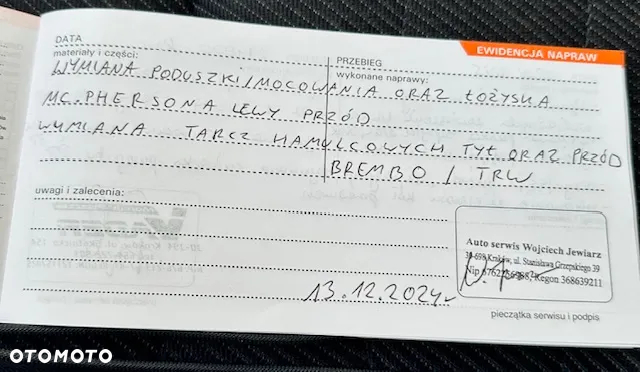 EWIDENCJA NAPRAW
DATA
PRZEBIEG
materiały i części:
wykonane naprawy:
WYMIANA PODUSZKI/MOCOWANIA ORAZ ŁOŻYSKA
MC.PHERSONA LEWY PRZÓD
WYMIANA TARCZ HAMULCOWYCH TYŁ ORAZ PRZÓD
BREMBO / TRW
uwagi i zalecenia:
Auto serwis Wojciech Jewiarz
30-698 Kraków, ul. Stanisława Grzepskiego 39
Regon 368639211
13.12.2024r
pieczątka serwisu i podpis
OTOMOTO